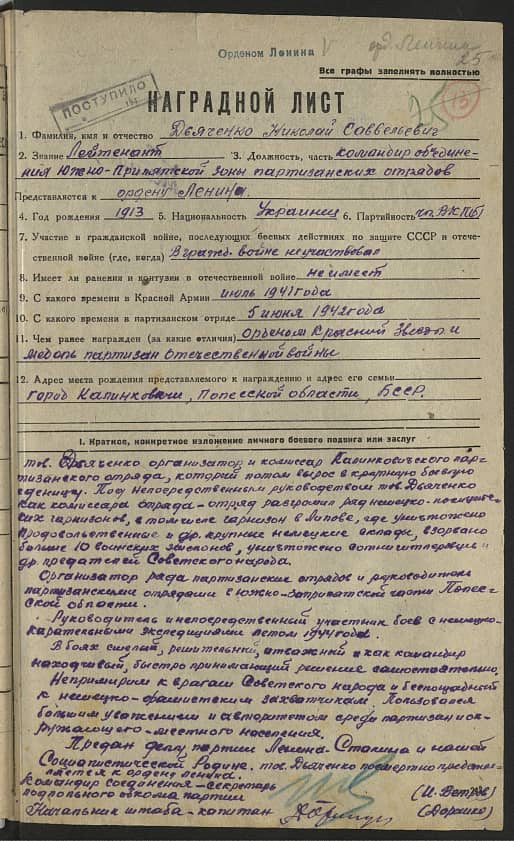 Орденом Ленина
орд. Ленина
25
Все графы заполнять полностью
ПОСТУПИЛО
75
13
НАГРАДНОЙ ЛИСТ
1. Фамилия, имя и отчество Дьяченко Николай Саввельевич
2. Звание Лейтенант 3. Должность, часть командир объедине-
ния Южно-Припятской зоны партизанских отрядов
Представляется к ордену Ленина.
4. Год рождения 1913 5. Национальность Украинец 6. Партийность чл. ВКП(б)
7. Участие в гражданской войне, последующих боевых действиях по защите СССР и отече-
ственной войне (где, когда) В гражд. войне не участвовал
8. Имеет ли ранения и контузии в отечественной войне не имеет
9. С какого времени в Красной Армии июль 1941 года
10. С какого времени в партизанском отряде 5 июня 1942 года
11. Чем ранее награжден (за какие отличия) орденом Красной Звезды и
медаль партизан отечественной войны
12. Адрес места рождения представляемого к награждению и адрес его семьи
город Калинковичи, Полесской области, БССР.
I. Краткое, конкретное изложение личного боевого подвига или заслуг
тов. Дьяченко организатор и комиссар Калинковичского пар-
тизанского отряда, который потом вырос в крупную боевую
единицу. Под непосредственным руководством тов. Дьяченко
как комиссара отряда – отряд разгромил ряд немецко-полицей-
ских гарнизонов, в том числе гарнизон в Липове, где уничтожено
продовольственные и др. крупные немецкие склады, взорвано
больше 10 воинских эшелонов, уничтожено сотни гитлеровцев и
др. предателей Советского народа.
Организатор ряда партизанских отрядов и руководитель
партизанскими отрядами в южно-заприпятской части Полес-
ской области.
Руководитель и непосредственный участник боев с немецко-
карательными экспедициями летом 1944 года.
В боях смелый, решительный, отважный и как командир
находчивый, быстро принимающий решение самостоятельно.
Непримирим к врагам Советского народа и беспощадный
к немецко-фашистским захватчикам. Пользовался
большим уважением и авторитетом среди партизан и ок-
ружающего местного населения.
Предан делу партии Ленина-Сталина и нашей
Социалистической Родине. тов. Дьяченко посмертно представ-
ляется к ордену Ленина.
Командир соединения – Секретарь
подпольного обкома партии (И. Ветров)
Начальник штаба – капитан (Дорошко)